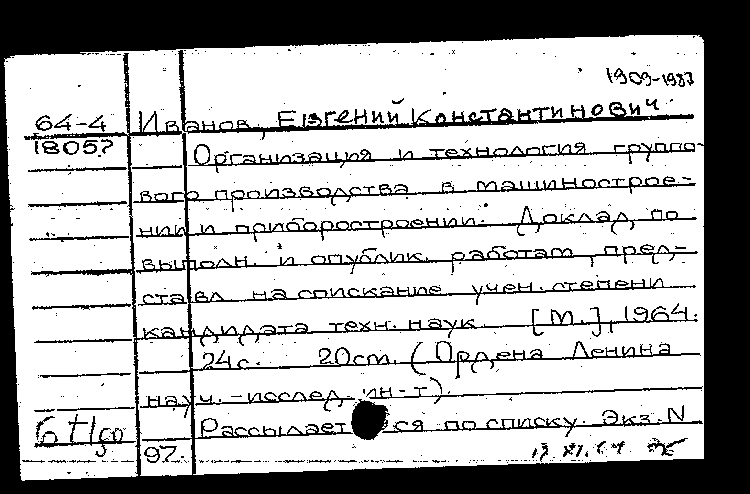 1909-1987
64-4 Иванов, Евгений Константинович
18057
Организация и технология группо-
вого производства в машинострое-
нии и приборостроении. Доклад по
выполн. и опублик. работам, пред-
ставл. на списканиe учен. степени
кандидата техн. наук. [М.], 1964.
24с. 20см. (Ордена Ленина
науч.-исслед. ин-т).
Рассылается по списку. Экз. N
97.